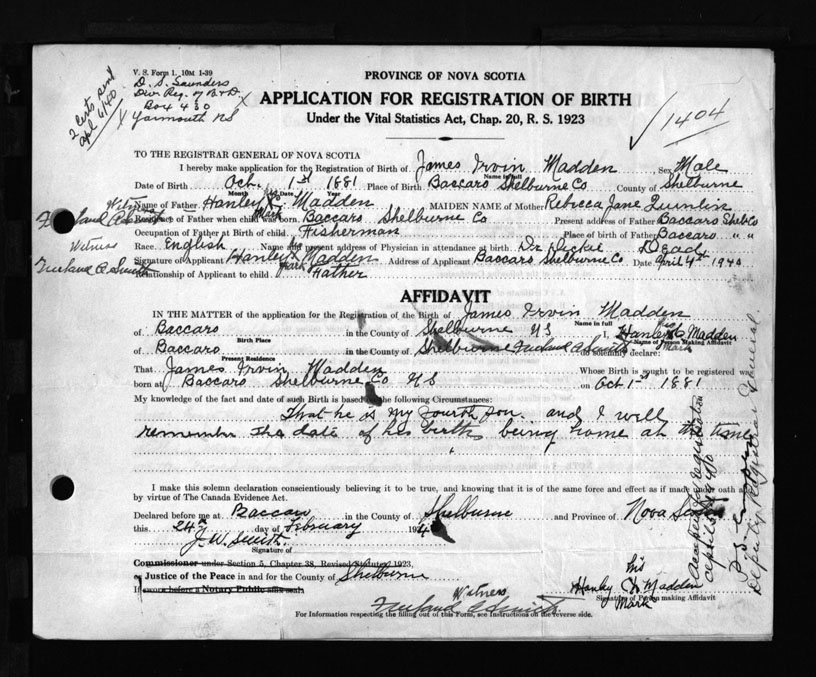 V. S. Form 1. 10M 1-39
D. S. Saunders
Div. Reg. of B & D.
Box 430
Yarmouth NS
2 certs sent
apl 6/40
PROVINCE OF NOVA SCOTIA
APPLICATION FOR REGISTRATION OF BIRTH
Under the Vital Statistics Act, Chap. 20, R. S. 1923
1404
TO THE REGISTRAR GENERAL OF NOVA SCOTIA
I hereby make application for the Registration of Birth of James Irvin Madden Sex Male
Name in full
Date of Birth Oct. 1st 1881 Place of Birth Baccaro Shelburne Co County of Shelburne
Month Date Year
Witness
Name of Father Hanley X Madden MAIDEN NAME of Mother Rebecca Jane
Mark
Residence of Father when child was born Baccaro Shelburne Co Present address of Father Baccaro Shel Co
Occupation of Father at Birth of child Fisherman Place of birth of Father Baccaro " "
Witness
Race English Name and present address of Physician in attendance at birth Dr Dead
Smith
Signature of Applicant Hanley X Madden Address of Applicant Baccaro Shelburne Co Date April 4th 1940
Mark
Relationship of Applicant to child Father
AFFIDAVIT
IN THE MATTER of the application for the Registration of the Birth of James Irvin Madden
Name in full
of Baccaro in the County of Shelburne NS I, Hanley X Madden
Birth Place Name of Person Making Affidavit
Mark
of Baccaro in the County of Shelburne Smith do solemnly declare:
Present Residence
That James Irvin Madden Whose Birth is sought to be registered was
born at Baccaro Shelburne Co NS on Oct 1st 1881
My knowledge of the fact and date of such Birth is based on the following Circumstances:
That he is my fourth son. and I well
remember the date of his birth being home at the time
I make this solemn declaration conscientiously believing it to be true, and knowing that it is of the same force and effect as if made under oath and
by virtue of The Canada Evidence Act.
Declared before me at Baccaro in the County of Shelburne and Province of Nova Scotia
this 24th day of February 194
J. W. Smith
Signature of
Commissioner under Section 5, Chapter 38, Revised Statutes 1923,
or Justice of the Peace in and for the County of Shelburne
If sworn before a Notary Public affix seal
his
Hanley X Madden
Signature of Person making Affidavit
Mark
Witness
Smith
For Information respecting the filling out of this Form, see Instructions on the reverse side.
Accepted for registration
Deputy Registrar General